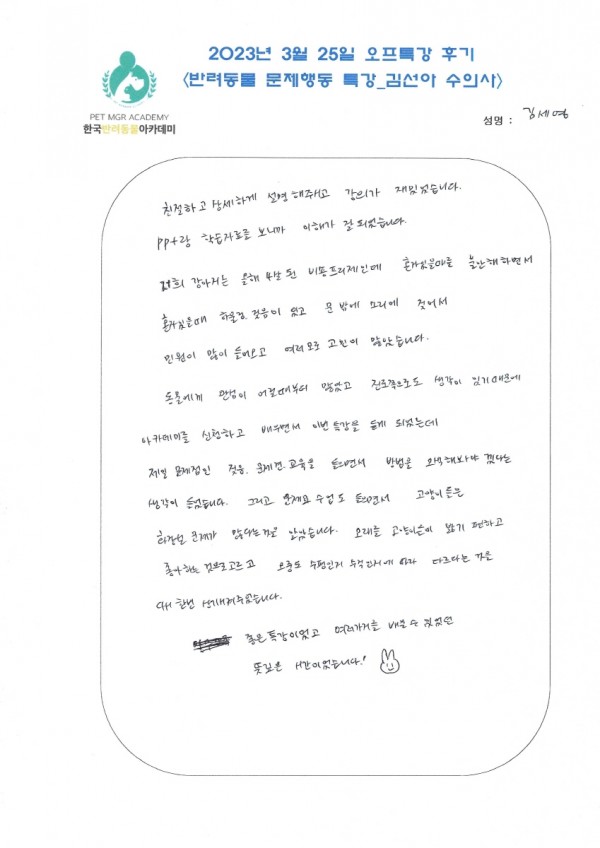 2023년 3월 25일 오프특강 후기
<반려동물 문제행동 특강_김선아 수의사>
PET MGR ACADEMY
한국반려동물아카데미
성명 : 김세영
친절하고 상세하게 설명해주시고 강의가 재밌었습니다.
ppt랑 학습자료를 보니까 이해가 잘 되었습니다.
저희 강아지는 올해 4살 된 비숑프리제인데 혼자있을때를 불안해하면서
혼자있을때 하울링, 짖음이 있고 문 밖에 소리에 짖어서
민원이 많이 들어오고 여러모로 고민이 많았습니다.
동물에게 관심이 어렸때부터 많았고 진로쪽으로도 생각이 있기 때문에
아카데미를 신청하고 배우면서 이번 특강을 듣게 되었는데
제일 문제점인 짖음, 문제견 교육을 들으면서 방법을 모색해봐야 겠다는
생각이 들었습니다. 그리고 문제묘 수업도 들으면서 고양이들은
화장실 문제가 많다는것을 알았습니다. 모래를 고양이들이 밟기 편하고
좋아하는 것으로 고르고 수평인지 수직인지에 따라 다르다는 것을
다시 한번 상기시켜주었습니다.
좋은 특강이었고 여러가지를 배울 수 있었던
뜻깊은 시간이었습니다!